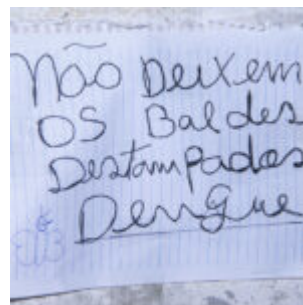 Não Deixem
OS Baldes
Destampados
Dengue